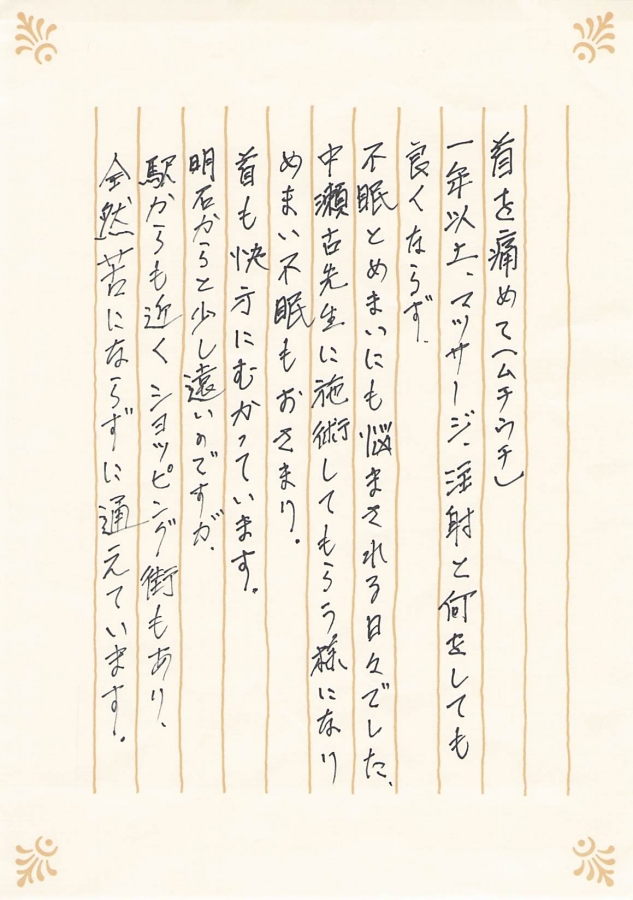 首を痛めて(ムチウチ)
一年以上、マッサージ、注射と何をしても
良くならず、
不眠とめまいにも悩まされる日々でした、
中瀬古先生に施術してもらう様になり
めまい不眠もおさまり。
首も快方にむかっています。
明石からと少し遠いのですが、
駅からも近くショッピング街もあり、
全然苦にならずに通えています。